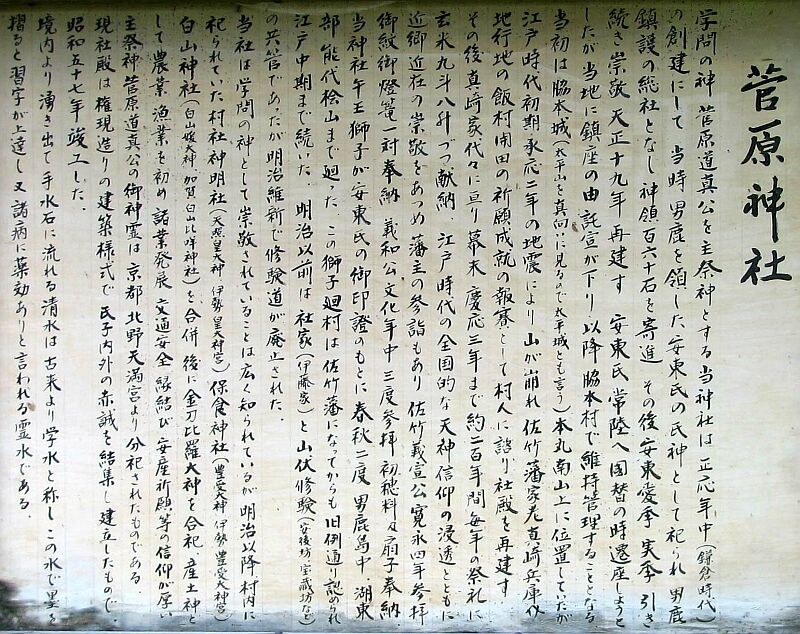 菅原神社
学問の神 菅原道真公を主祭神とする当神社は正応年中（鎌倉時代）
の創建にして 当時 男鹿を領した安東氏の氏神として祀られ 男鹿
鎮護の総社となし 神領百六十石を寄進 その後 安東愛季 実季 引き
続き崇敬 天正十九年 再建す 安東氏 常陸へ国替の時遷座しようと
したが 当地に鎮座の由 託宣が下り 以降 脇本村で維持管理することとなる
当初は 脇本城（太平山を真向に見るので太平城とも言う）本丸南山上に位置していたが
江戸時代初期 承応二年の地震により山が崩れ 佐竹藩家老真崎兵庫が
地行地の飯村開田の祈願成就の報賽として 村人に諮り 社殿を再建す
その後 真崎家代々に亘り 幕末 慶応三年まで 約二百年間 毎年の祭礼に
玄米九斗八升づつ献納 江戸時代の全国的な天神信仰の浸透とともに
近郷近在の崇敬をあつめ 藩主の参詣もあり 佐竹義宣公 寛永四年参拝
御紋御燈篭一対奉納 義和公 文化年中三度参拝 初穂料及扇子奉納
当神社 午王獅子が 安東氏の御印證のもとに 春秋二度 男鹿島中、湖東
部 能代桧山まで廻った。この獅子廻村は佐竹藩になってからも旧例通り認められ
江戸中期まで続いた。明治以前は 社家（伊藤家）と山伏修験（安後坊 宝蔵坊など）
の共管であったが 明治維新で修験道が廃止された。
当社は 学問の神として崇敬されていることは広く知られているが 明治以降 村内に
祀られていた村社 神明社（天照皇大神 伊勢 皇大神宮）保食神社（豊受大神 伊勢 豊受大神宮）
白山神社（白山媛大神 加賀 白山比咩神社）を合併 後に金刀比羅大神を合祀 産土神と
して 農業 漁業を初め 諸業発展 交通安全 縁結び 安産祈願等の信仰が厚い
主祭神 菅原道真公の御神霊は 京都 北野天満宮より 分祀されたものである
現社殿は 権現造りの建築様式で 氏子内外の赤誠を結集し建立したもので、
昭和五十七年竣工した。
境内より湧き出て 手水石に流れる清水は 古来より学水と称し この水で墨を
摺ると習字が上達し 又 諸病に薬効ありと言われる霊水である。